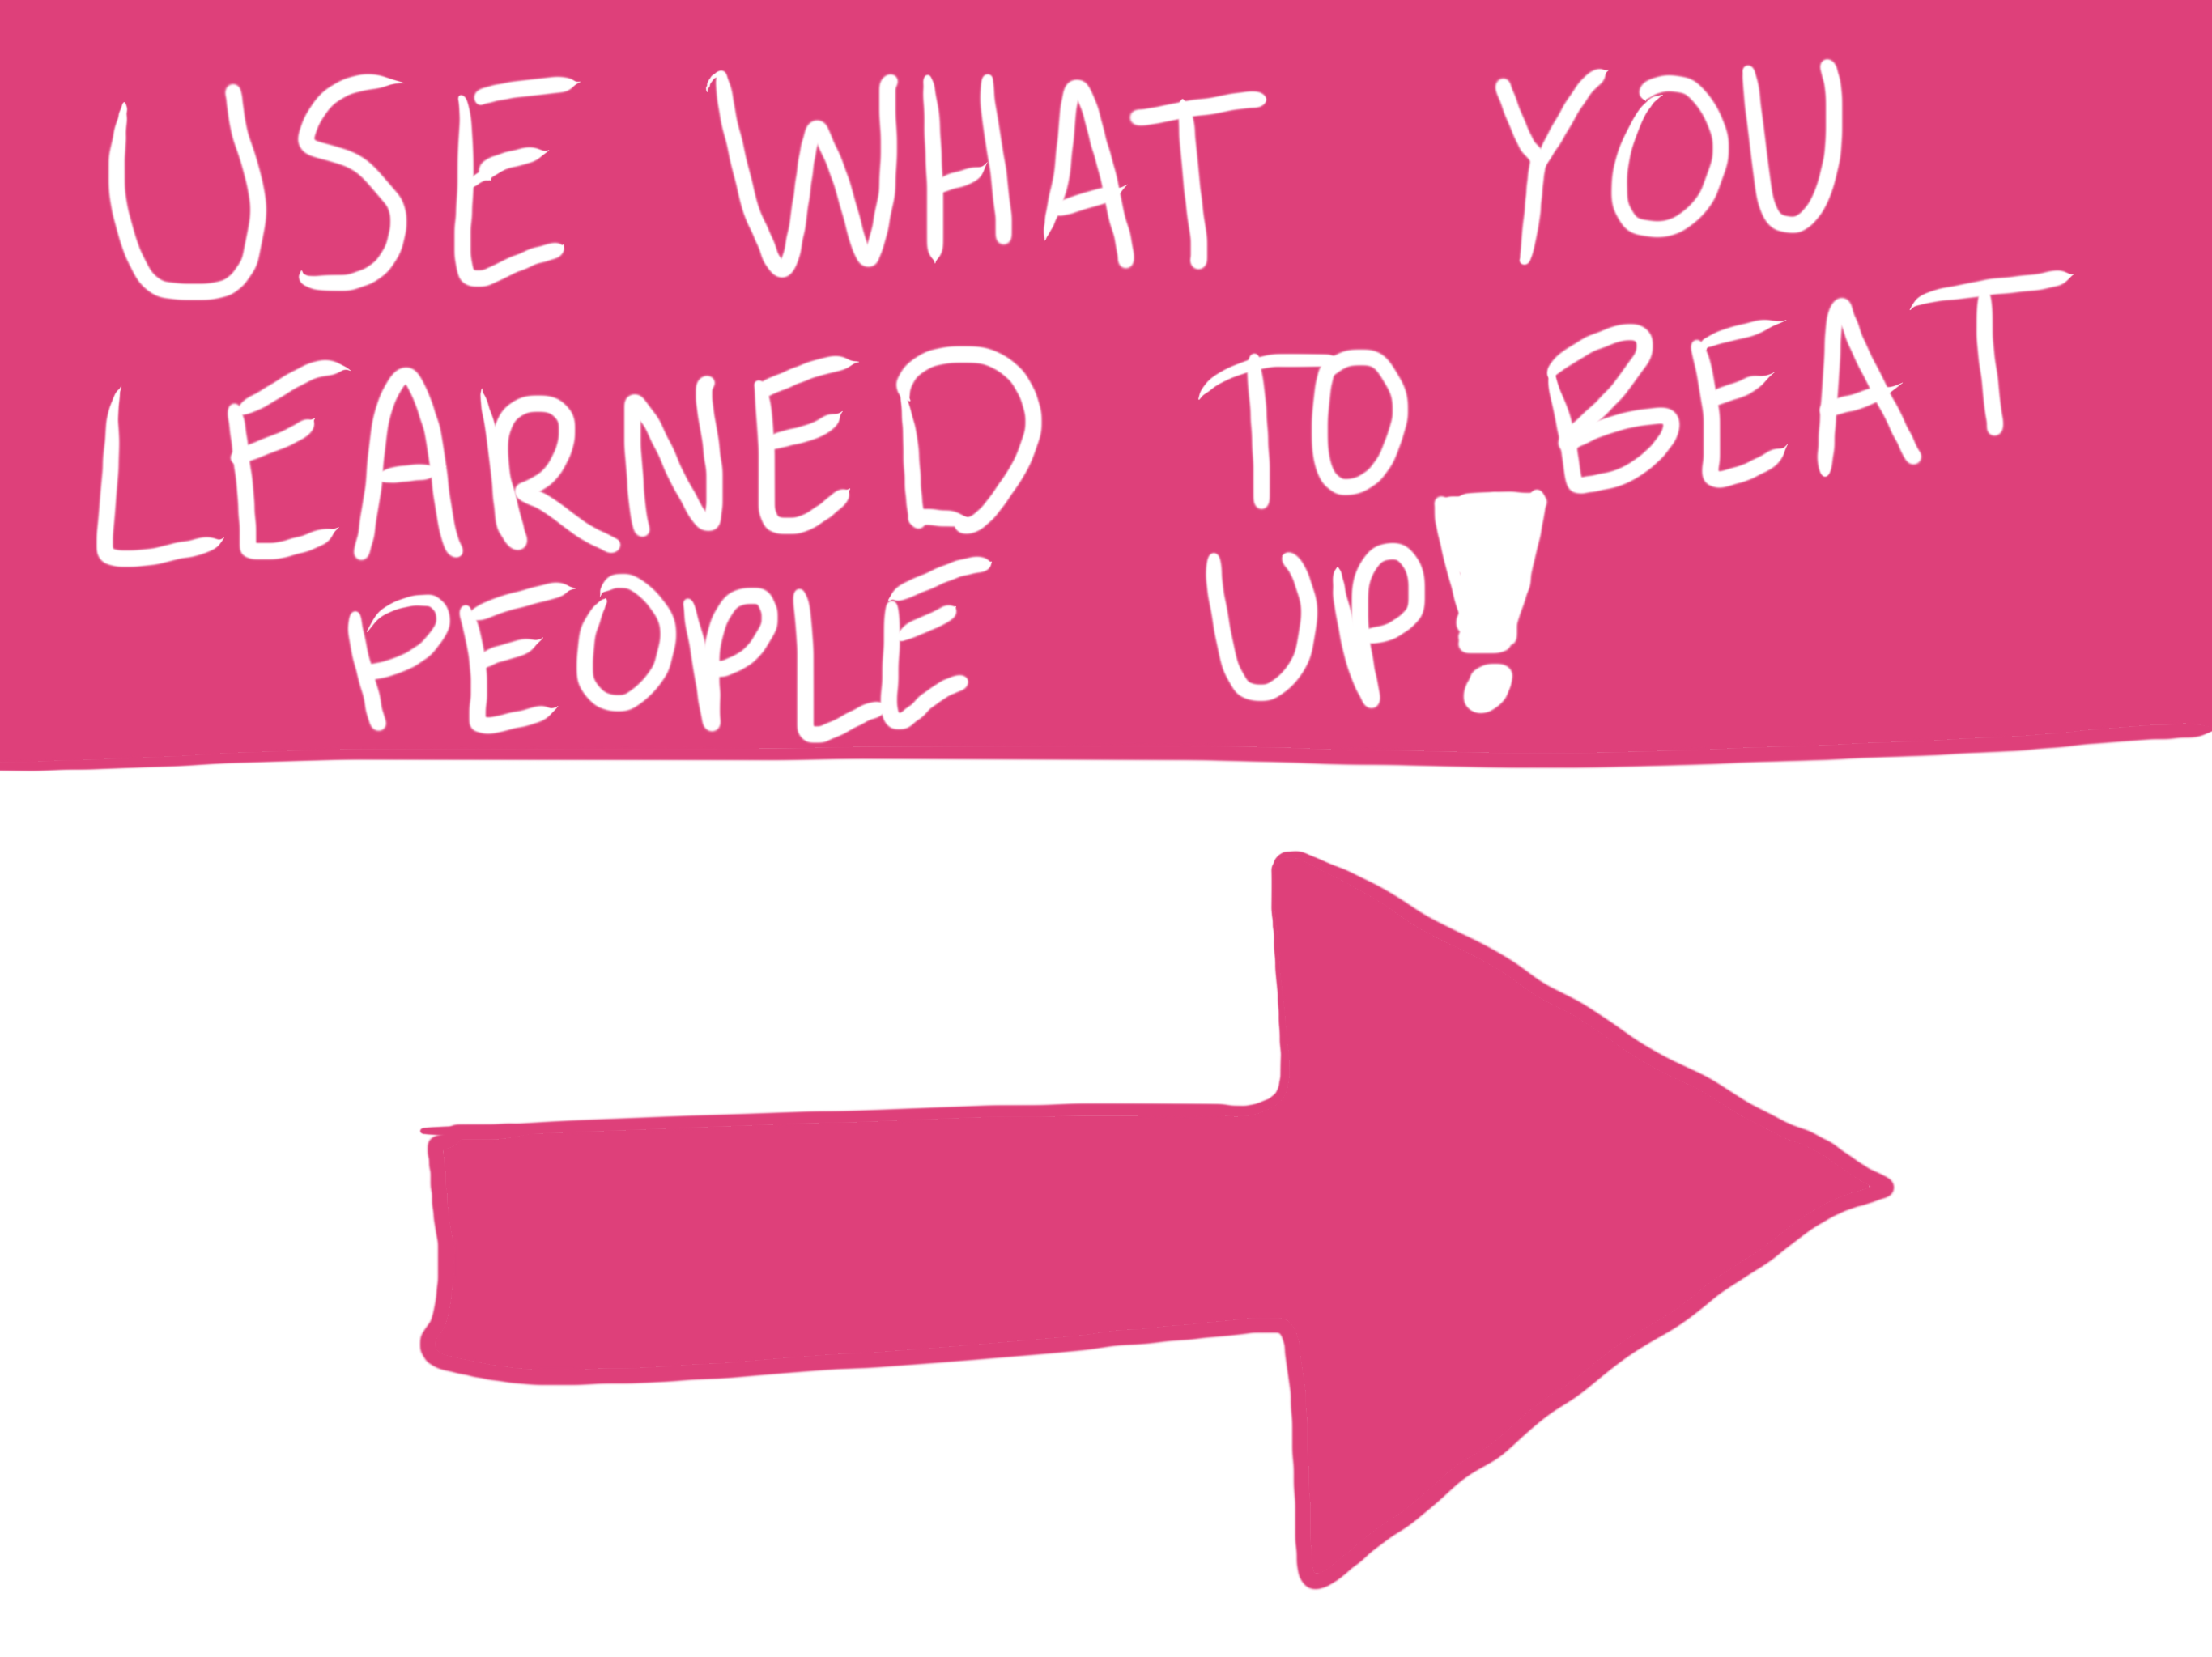 USE WHAT YOU
LEARNED TO BEAT
PEOPLE UP!